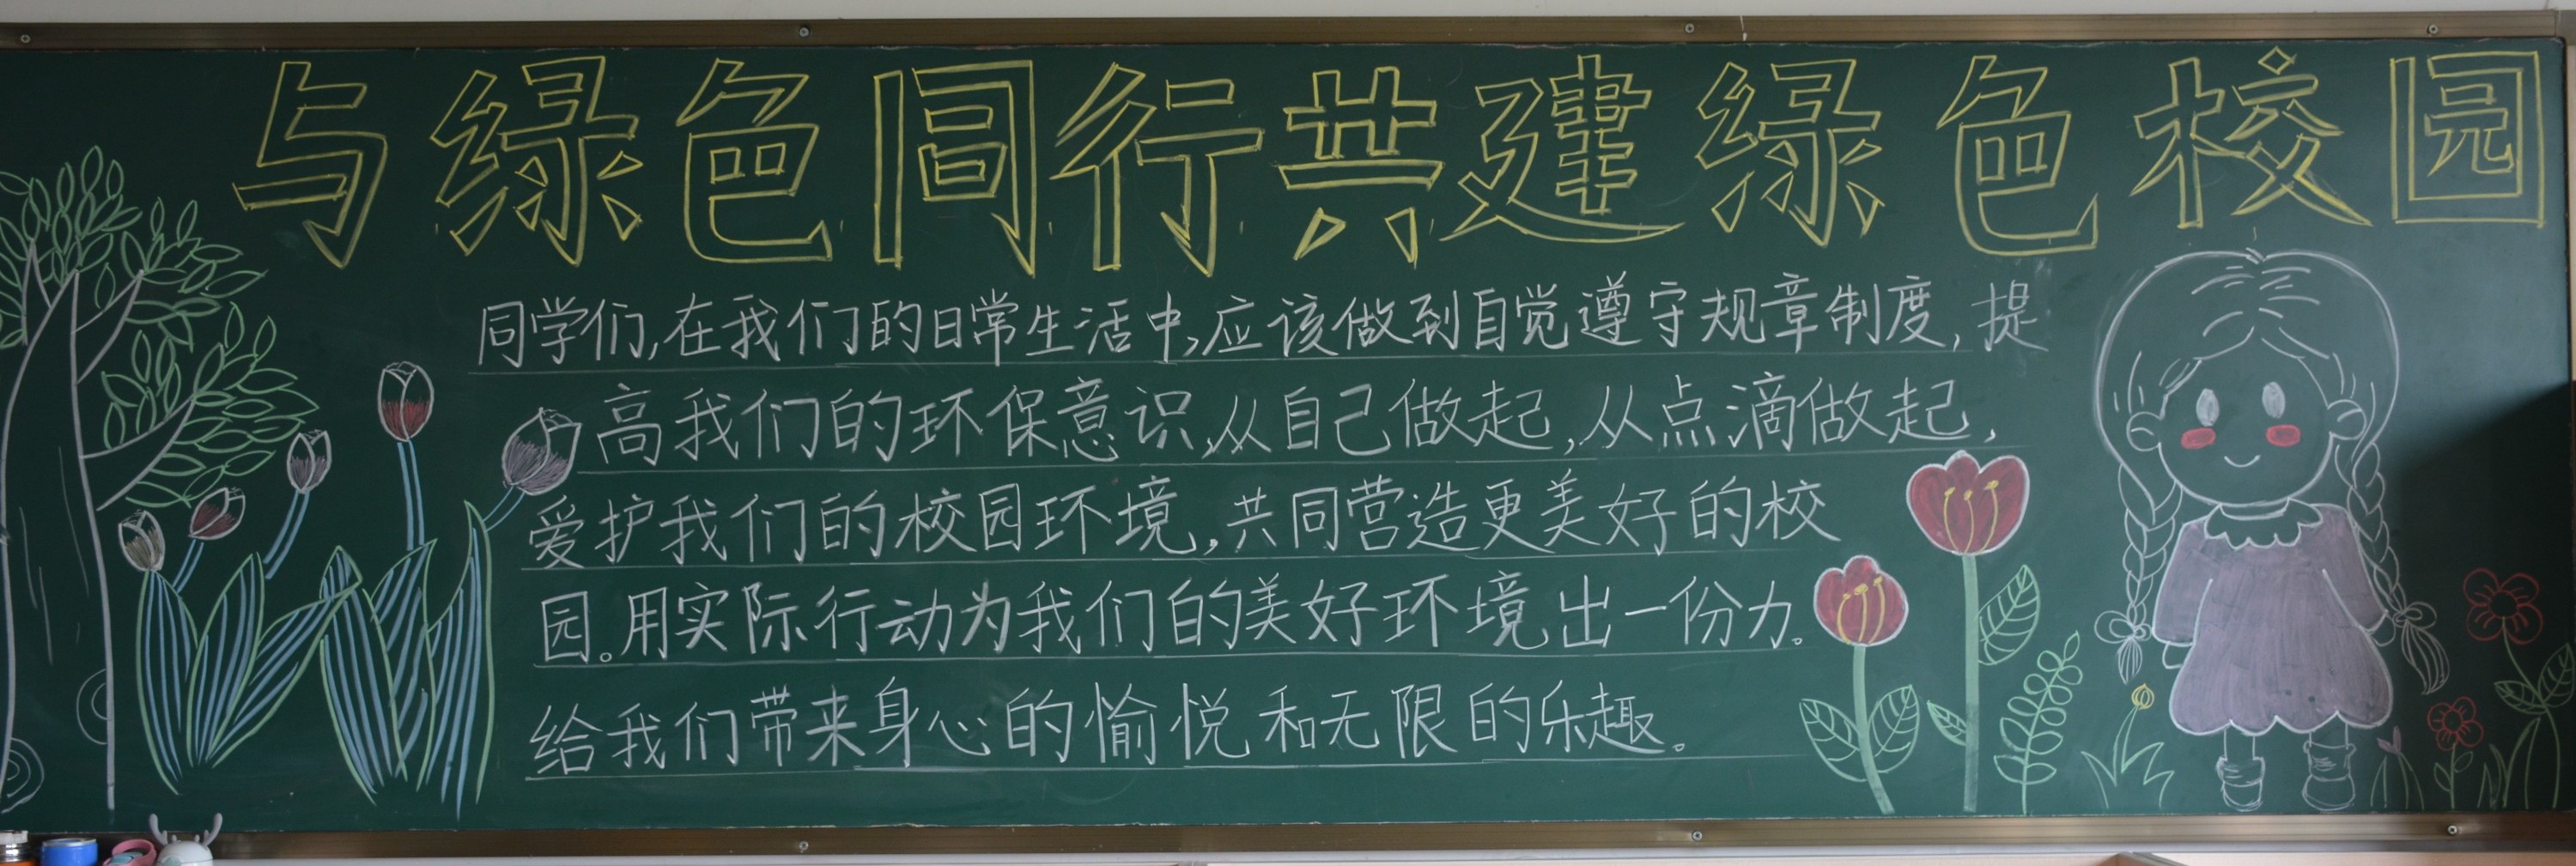 与绿色同行共建绿色校园
同学们,在我们的日常生活中,应该做到自觉遵守规章制度,提
高我们的环保意识,从自己做起,从点滴做起,
爱护我们的校园环境,共同营造更美好的校
园。用实际行动为我们的美好环境出一份力。
给我们带来身心的愉悦和无限的乐趣。